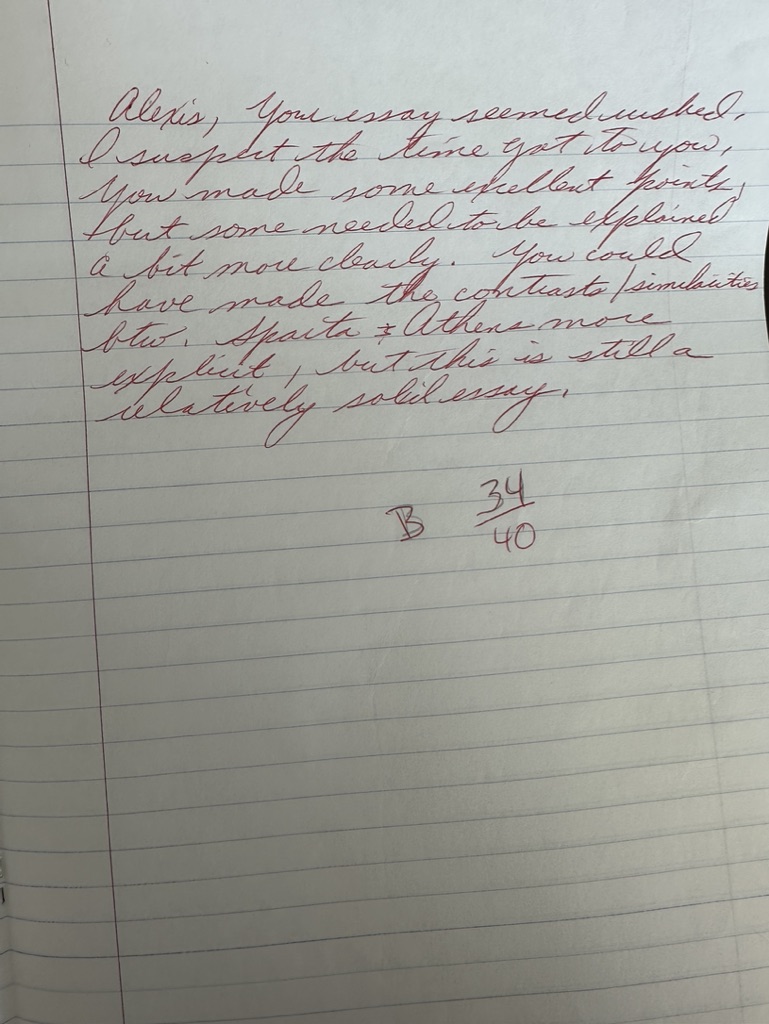 Alexis, Your essay seemed rushed.
I suspect the time got to you.
You made some excellent points,
but some needed to be explained
a bit more clearly. You could
have made the contrasts/similarities
btw. Sparta & Athens more
explicit, but this is still a
relatively solid essay.
B 34/40